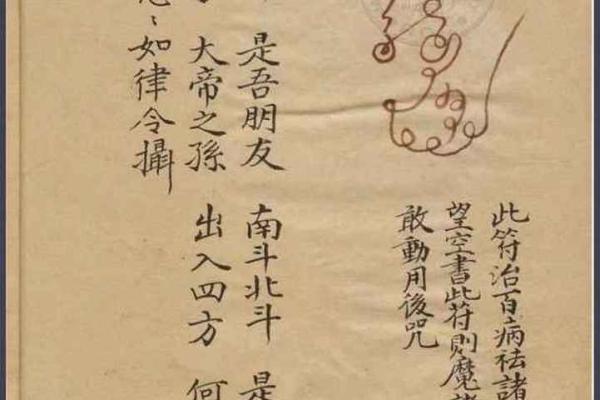 此符治百病祛諸
望空書此符則魔
敢動用後咒
是吾朋友 南斗北斗 是
大帝之孫 出入四方 何
如律令攝